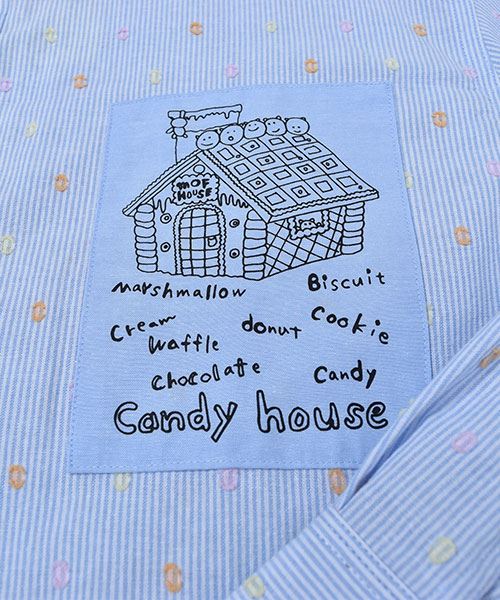 mOF
HOUSE
marshmallow Biscuit
Cream donut Cookie
Waffle
chocolate Candy
Candy house